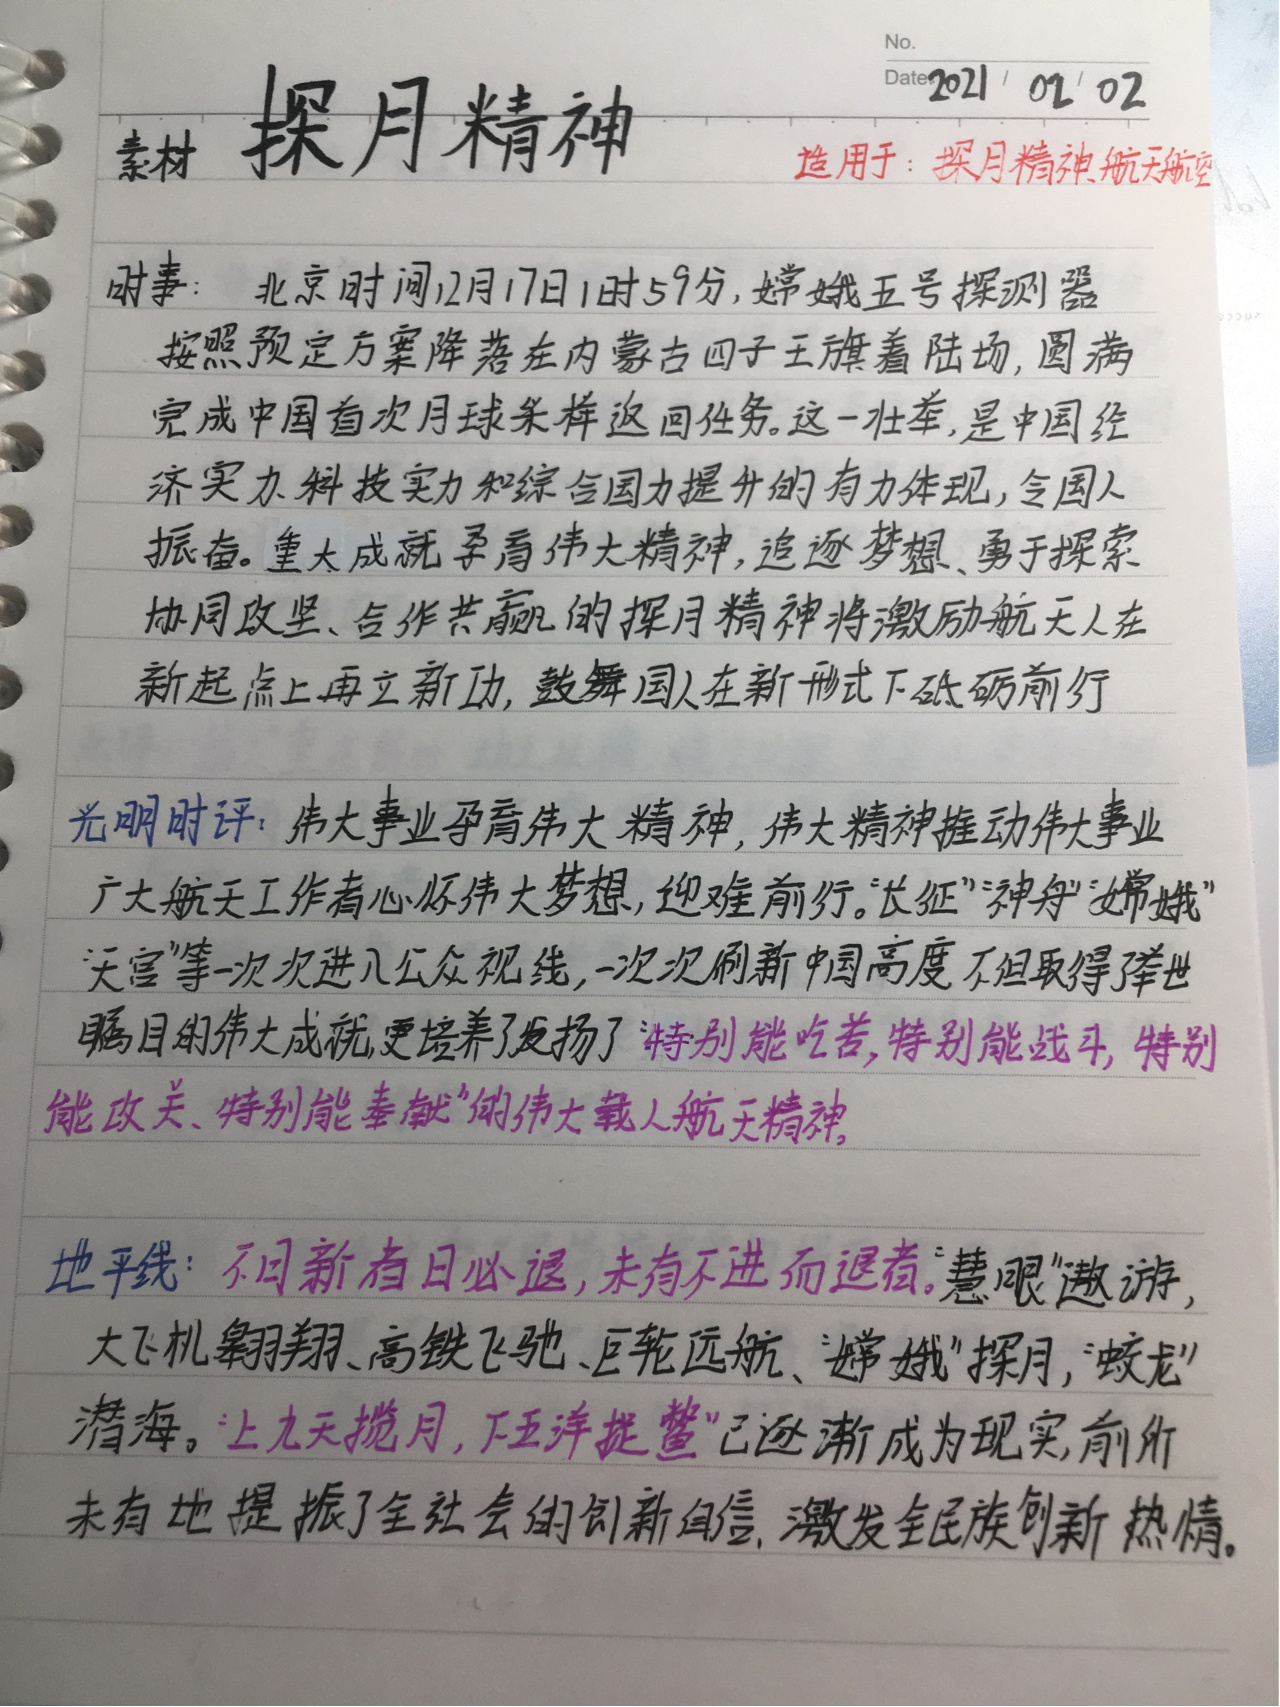 No.
Date 2021 / 02 / 02
素材 探月精神
适用于：探月精神、航天航空
时事： 北京时间12月17日1时59分，嫦娥五号探测器
按照预定方案降落在内蒙古四子王旗着陆场，圆满
完成中国首次月球采样返回任务。这一壮举，是中国经
济实力、科技实力和综合国力提升的有力体现，令国人
振奋。重大成就孕育伟大精神，追逐梦想、勇于探索
协同攻坚、合作共赢的探月精神将激励航天人在
新起点上再立新功，鼓舞国人在新形式下砥砺前行
光明时评：伟大事业孕育伟大精神，伟大精神推动伟大事业
广大航天工作者心怀伟大梦想，迎难前行。“长征”“神舟”“嫦娥”
“天宫”等一次次进入公众视线，一次次刷新中国高度不但取得了举世
瞩目的伟大成就，更培养了发扬了“特别能吃苦，特别能战斗，特别
能攻关、特别能奉献”的伟大载人航天精神，
地平线：不日新者日必退，未有不进而退者。“慧眼”遨游，
大飞机翱翔、高铁飞驰、巨轮远航、“嫦娥”探月，“蛟龙”
潜海。“上九天揽月，下五洋捉鳖”已逐渐成为现实，前所
未有地提振了全社会的创新自信、激发全民族创新热情。